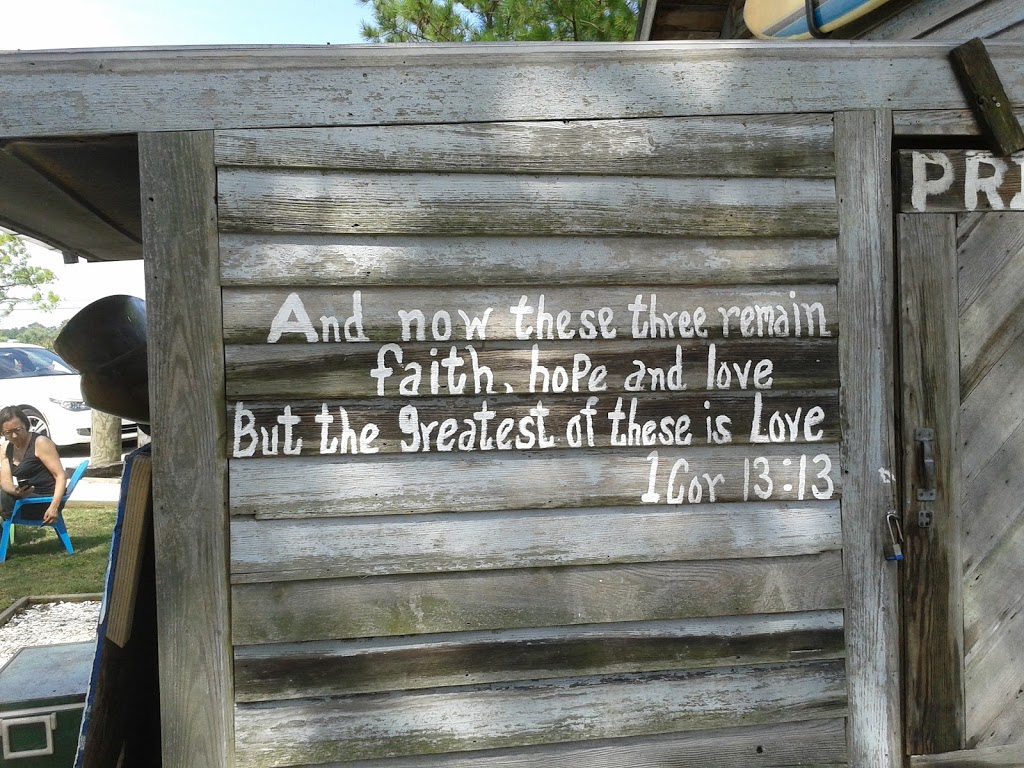 And now these three remain
faith, hope and love
But the greatest of these is Love
1 Cor 13:13